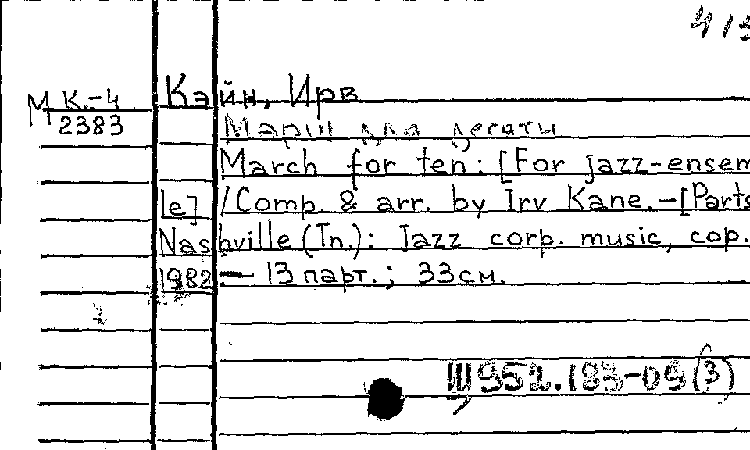 413
М К.-4
2383
Кайн, Ирв
Марш для десяти
March for ten: [For jazz-ensem
le] / Comp. & arr. by Irv Kane. - [Parts
Nashville (Tn.): Jazz corp. music, cop.
1982 - 13 парт.; 33 см.
Щ952.183-09(3)